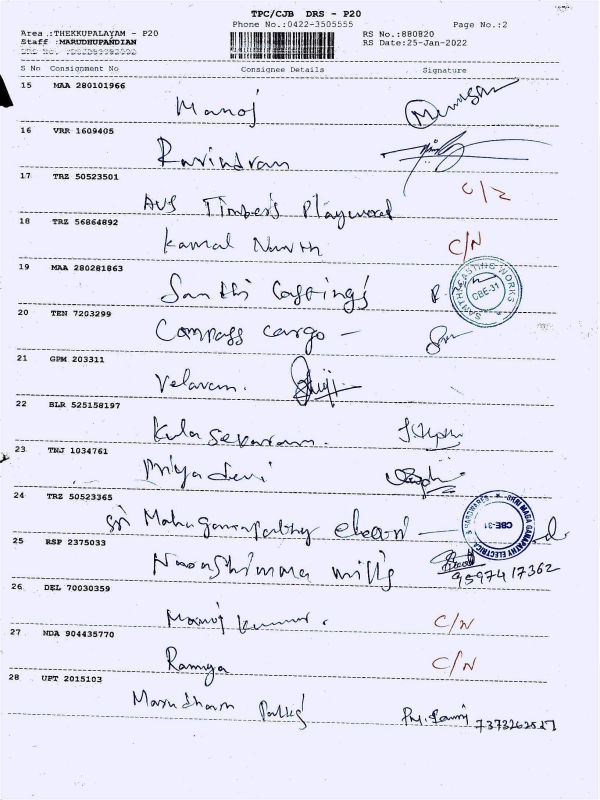 TPC/CJB DRS - P20
Phone No.:0422-3505555 Page No.:2
Area :THEKKUPALAYAM - P20 RS No.:880820
Staff :MARUDHUPANDIAN RS Date:25-Jan-2022
S No Consignment No Consignee Details Signature
15 MAA 280101966
Manoj
16 VRR 1609405
Ravindran
17 TRZ 50523501
AVS Timbers Playwood
18 TRZ 56864892
Kamal Nanth C/N
19 MAA 280281863
Santhi Casting's
SANTHI CASTING WORKS CBE-31
20 TEN 7203299
Compass cargo -
21 GPM 203311
Velavan.
22 BLR 525158197
Kulasekaram.
23 TNJ 1034761
Priya devi
24 TRZ 50523365
Sri Maha Ganapathy
SHRI MAGA GANAPATHY ELECTRICAL & HARDWARES CBE-31
25 RSP 2375033
mills 9597417362
26 DEL 70030359
Manoj kumar. C/N
27 NDA 904435770
Ramya C/N
28 UPT 2015103
Marudham